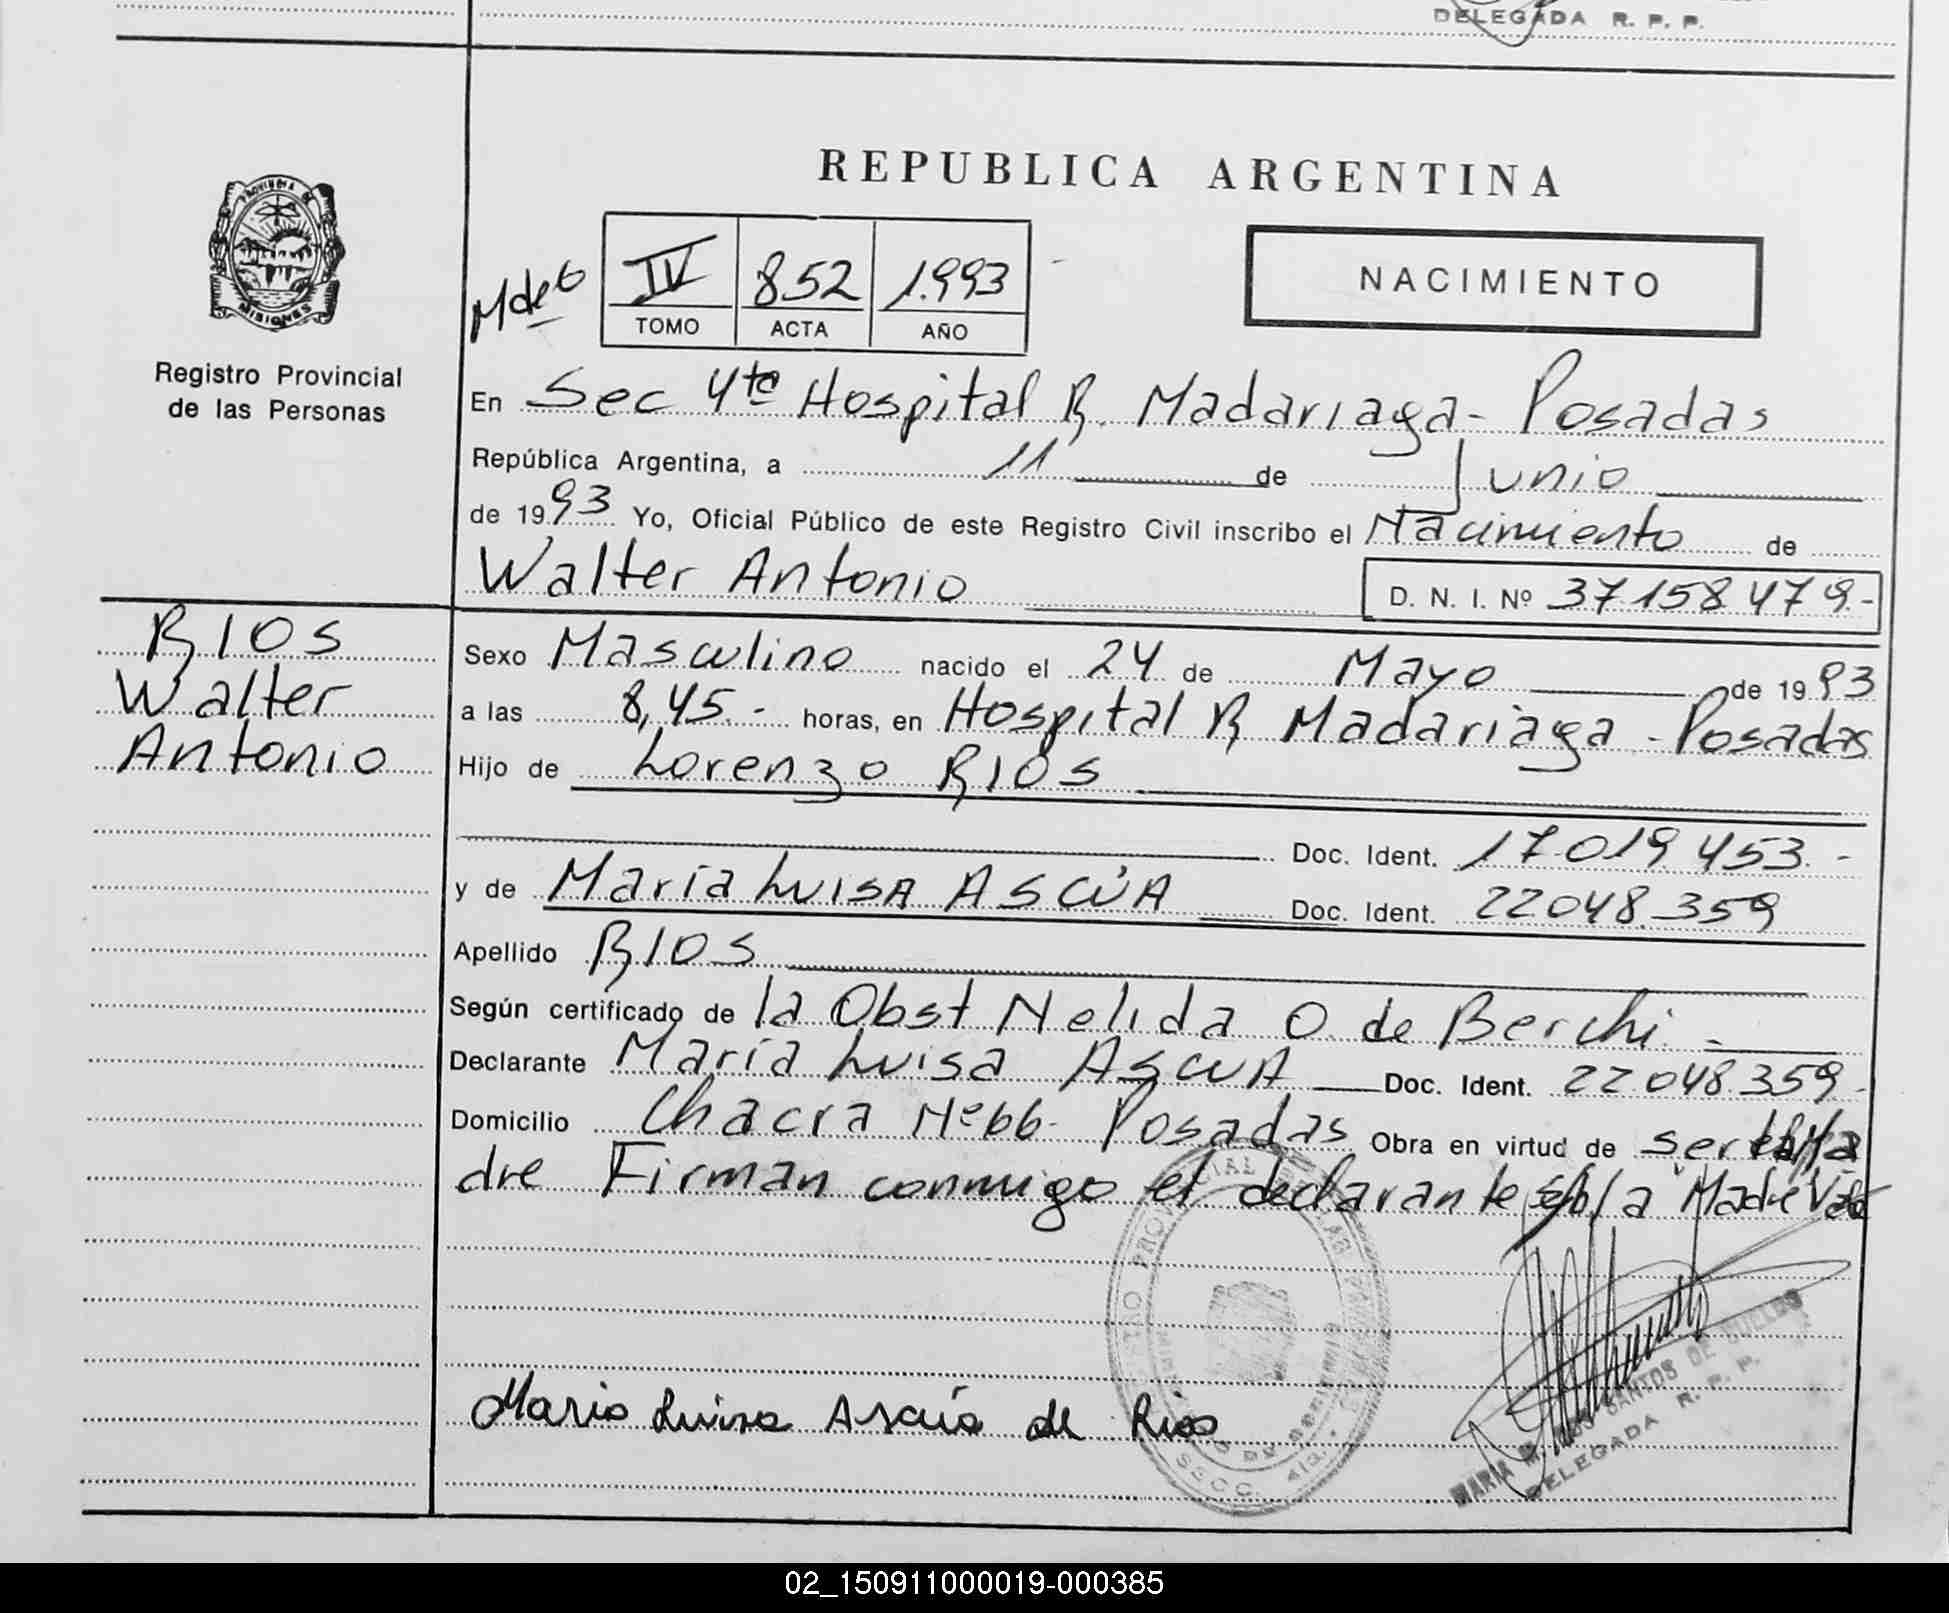 DELEGADA R. P. P.
REPUBLICA ARGENTINA
PROVINCIA DE
MISIONES
Registro Provincial
de las Personas
IV 852 1.993
TOMO ACTA AÑO
NACIMIENTO
En Sec 4ta Hospital R. Madariaga - Posadas
República Argentina, a 11 de Junio
de 1993 Yo, Oficial Público de este Registro Civil inscribo el Nacimiento de
Walter Antonio D. N. I. Nº 37158479.-
RIOS
Walter
Antonio
Sexo Masculino nacido el 24 de Mayo de 1993
a las 8,45.- horas, en Hospital R Madariaga - Posadas
Hijo de Lorenzo RIOS
Doc. Ident. 17019453.-
y de María Luisa ASCÚA Doc. Ident. 22048.359
Apellido RIOS
Según certificado de la Obst Nelida O. de Berchi.-
Declarante María Luisa ASCUA Doc. Ident. 22048.359-
Domicilio Chacra Nº66- Posadas Obra en virtud de ser la Ma
dre Firman conmigo el declarante la Madre
Maria Luisa Ascúa de Rios
DELEGADA R. P. P.
02_150911000019-000385